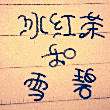 冰紅茶
和
雪碧